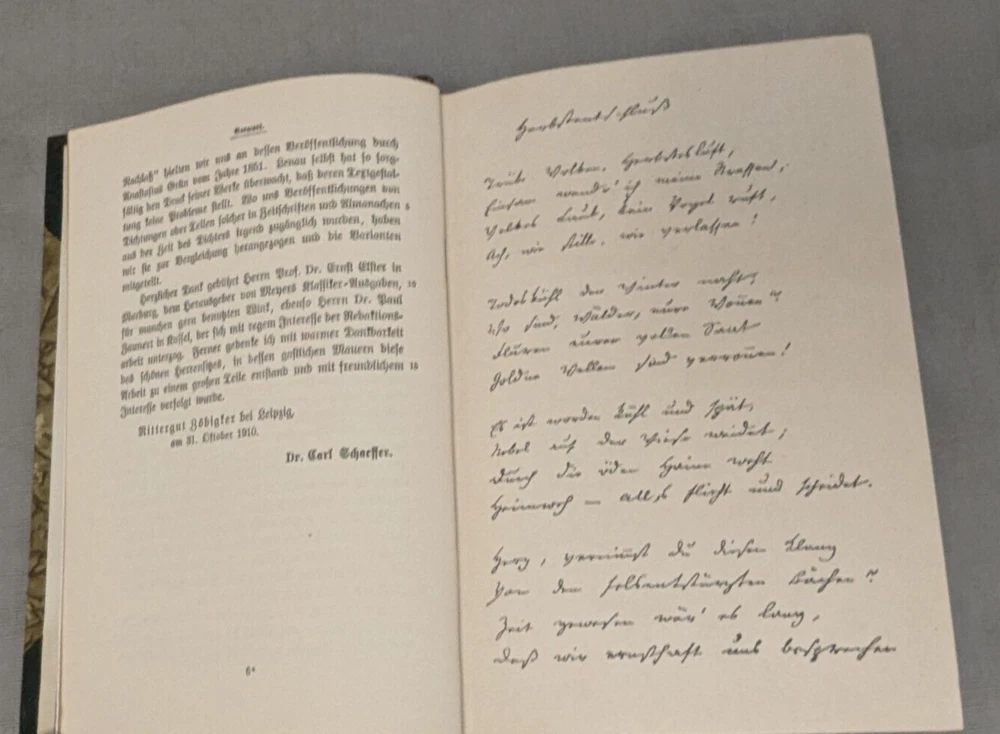 Vorwort.
Nachlaß“ hielten wir uns an dessen Veröffentlichung durch
Anastasius Grün vom Jahre 1851. Lenau selbst hat so sorg-
fältig den Druck seiner Werke überwacht, daß deren Textgestal-
tung keine Probleme stellt. Wo uns Veröffentlichungen von
Dichtungen oder Teilen solcher in Zeitschriften und Almanachen 5
aus der Zeit des Dichters irgend zugänglich wurden, haben
wir sie zur Vergleichung herangezogen und die Varianten
mitgeteilt.
Herzlicher Dank gebührt Herrn Prof. Dr. Ernst Elster in
Marburg, dem Herausgeber von Meyers Klassiker-Ausgaben, 10
für manchen gern benutzten Wink, ebenso Herrn Dr. Paul
Zaunert in Kassel, der sich mit regem Interesse der Redaktions-
arbeit unterzog. Ferner gedenke ich mit warmer Dankbarkeit
des schönen Herrensitzes, in dessen gastlichen Mauern diese
Arbeit zu einem großen Teile entstand und mit freundlichem 15
Interesse verfolgt wurde.
Rittergut Zöbigker bei Leipzig,
am 31. Oktober 1910.
Dr. Carl Schaeffer.
6*
Herbstentschluß
Trübe Wolken, Herbstesluft,
Einsam wandl' ich meine Straßen,
Welkes Laub, kein Vogel ruft,
Ach, wie stille, wie verlassen!
Todeskühl der Winter naht;
Wo sind, Wälder, eure Wonnen?
Fluren eurer vollen Saat
Goldne Wellen sind verronnen!
Es ist worden kühl und spät,
Nebel auf der Wiese weidet;
Durch die öden Haine weht
Heimweh – alles flieht und scheidet.
Herz, vernimmst du diesen Klang
Von den felsentstürzten Bächen?
Zeit gewesen wär' es lang,
Daß wir ernsthaft uns besprechen